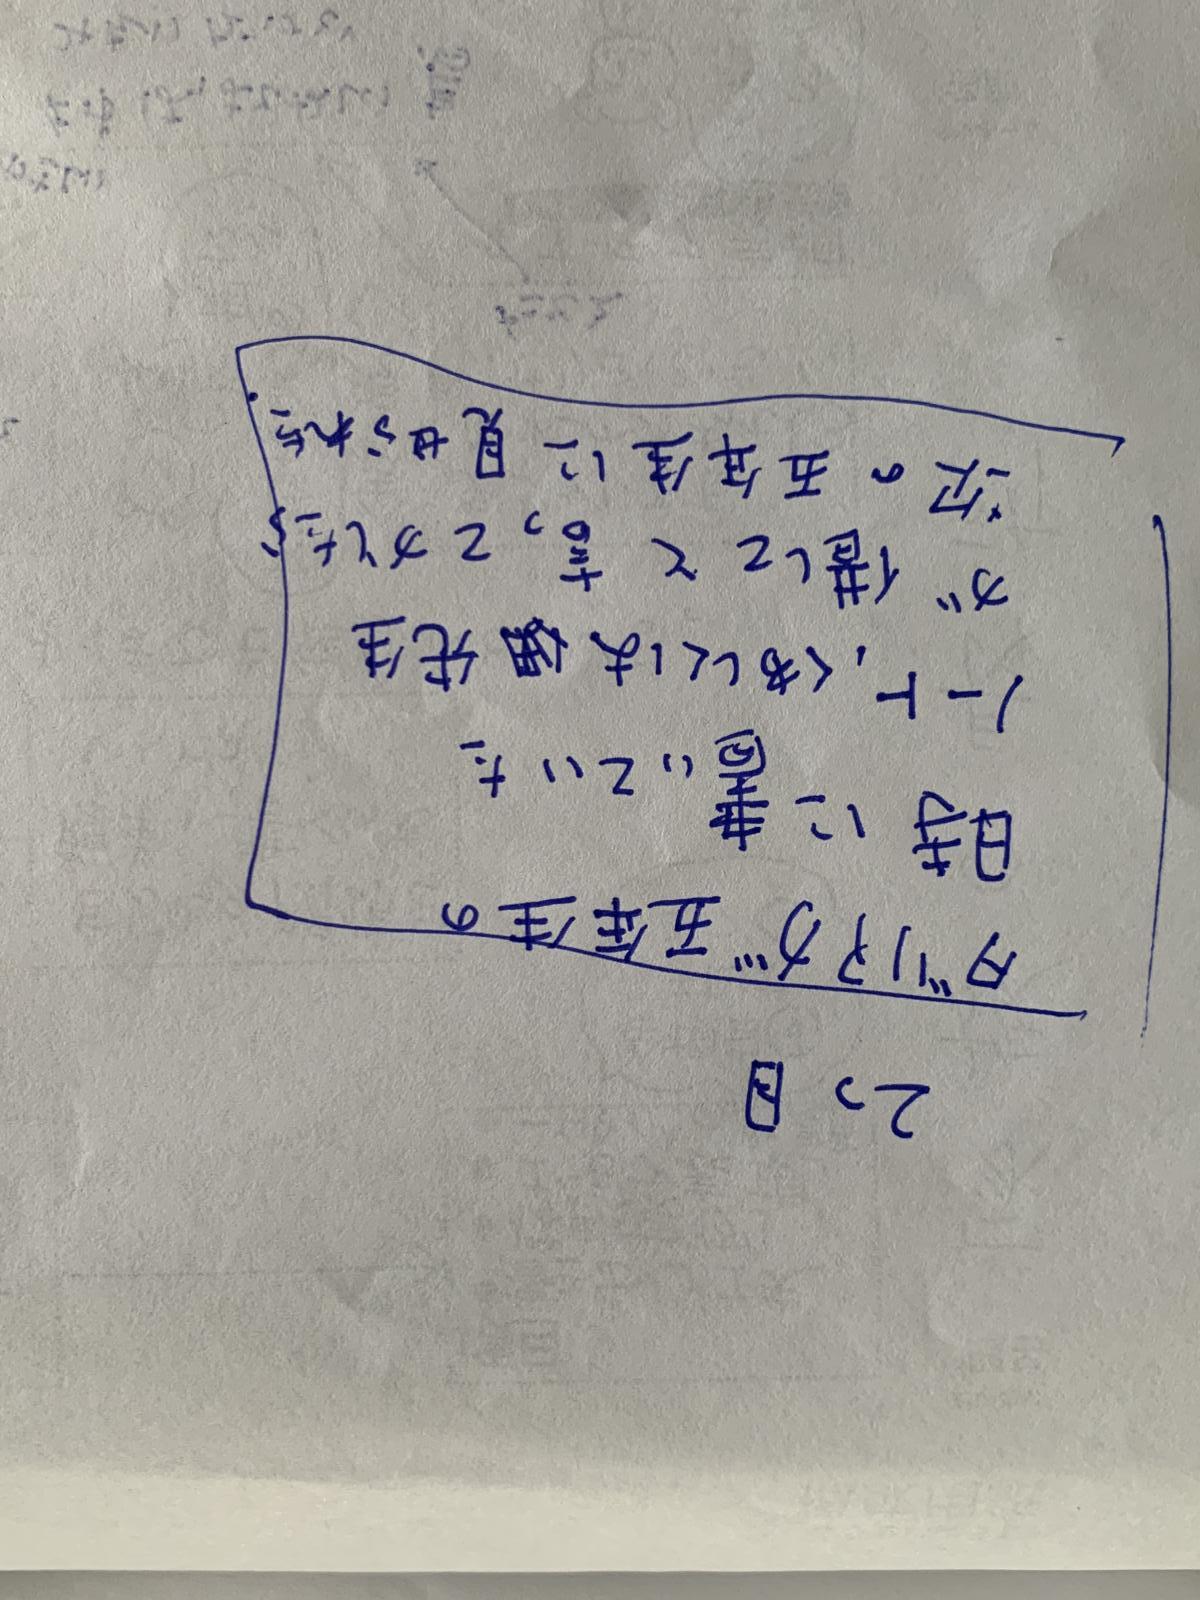 2つ目
ダリアが五年生の
時に書いていた
ノート、くわしくは 先生
が借してと言ってかしたら
次の五年生に見せられた.